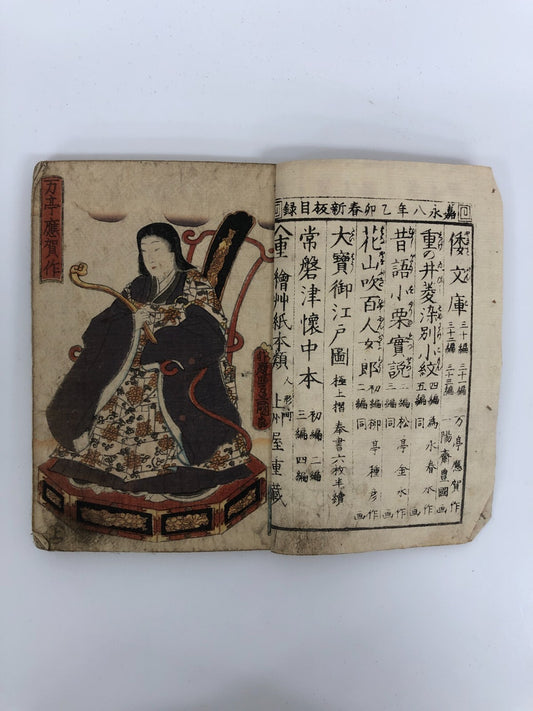 万亭應賀作
嘉永八年乙卯春新板目録
倭文庫 三十編 三十一編 三十二編 三十三編 万亭應賀作 陽齋豊國画
重の井菱染別小紋 四編 五編 為永春水作 同画
昔語小栗實説 二編 三編 松亭金水作 同画
花山吹百人女郎 初編 二編 柳亭種彦作 同画
大寶御江戸圖 極上摺奉書六枚半續
常磐津懐中本 初編 二編 三編 四編
繪艸紙本類 人形町 上州屋重藏